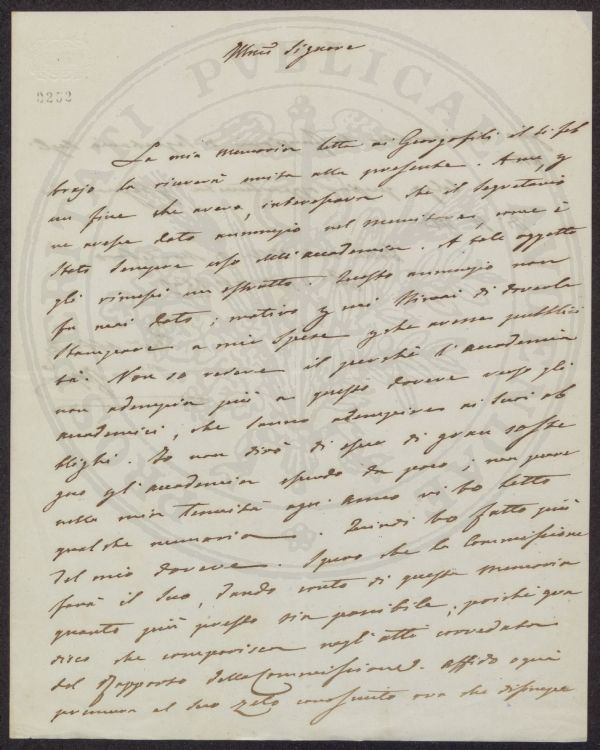 Illmo Signore
3252
La mia memoria letta ai Georgofili il 4 feb
brajo la riceverà unita alla presente. A me, p
un fine che aveva, interessava che il segretario
ne avesse dato annunzio nel Monitore, come è
stato sempre uso dell'accademia. A tale oggetto
gli rimessi un estratto. Questo annunzio non
fu mai dato; motivo p cui di doverla
stampare a mie spese p che avesse pubblici
tà. Non so vedere il perchè l'accademia
non adempia più a questo dovere verso gli
accademici, che sanno adempire ai suoi ob
blighi. Io non dirò di essere di gran soste
gno p l'accademia essendo da poco; ma pure
nella mia tenuità ogni anno vi ho letto
qualche memoria. Quindi ho fatto più
del mio dovere. Spero che la Commissione
farà il suo, dando conto di questa memoria
quanto più presto sia possibile; poichè gra
disco che comparisca negl'atti corredata
del Rapporto della Commissione. Affido ogni
premura al suo zelo conosciuto ora che